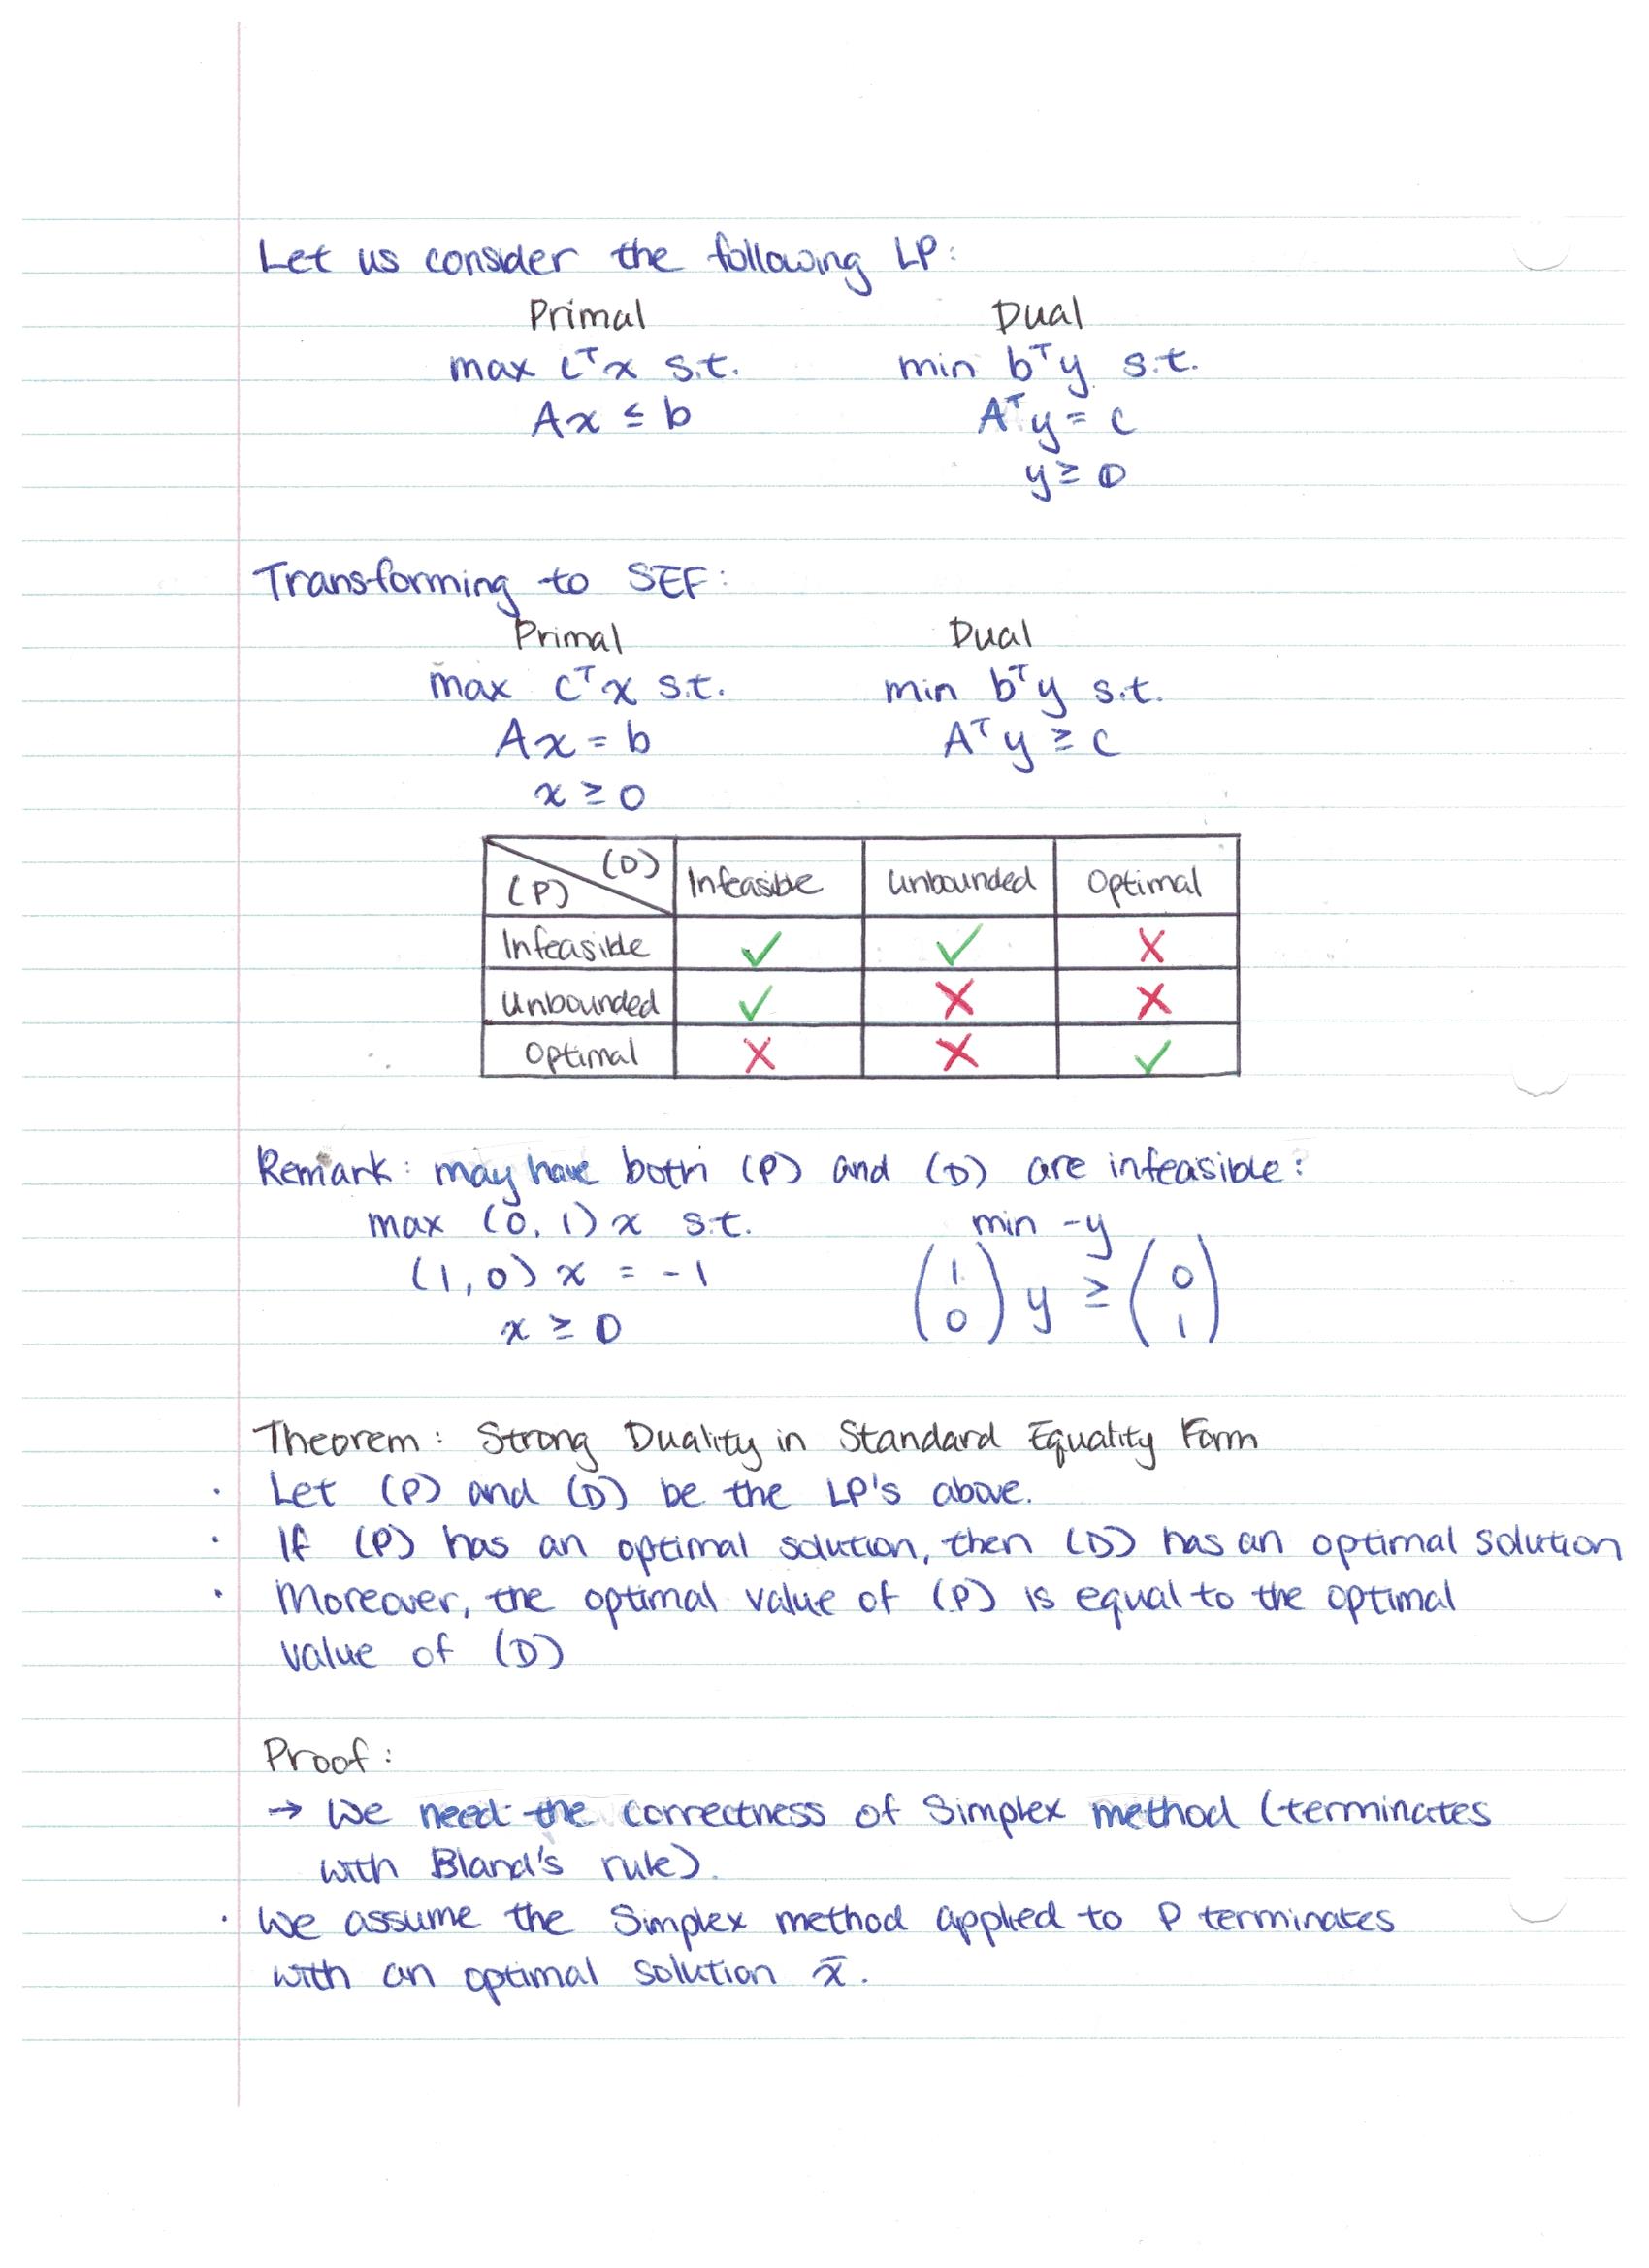 Let us consider the following LP:
Primal Dual
max cᵀx s.t. min bᵀy s.t.
Ax ≤ b Aᵀy = c
y ≥ 0
Transforming to SEF:
Primal Dual
max cᵀx s.t. min bᵀy s.t.
Ax = b Aᵀy ≥ c
x ≥ 0
(P) (D) Infeasible Unbounded Optimal
Infeasible ✓ ✓ X
Unbounded ✓ X X
Optimal X X ✓
Remark: may have both (P) and (D) are infeasible:
max (0, 1) x s.t. min -y
(1, 0) x = -1 (1 0) y ≥ (0 1)
x ≥ 0
Theorem: Strong Duality in Standard Equality Form
· Let (P) and (D) be the LP's above.
· If (P) has an optimal solution, then (D) has an optimal solution
· Moreover, the optimal value of (P) is equal to the optimal
value of (D)
Proof:
→ We need the correctness of Simplex method (terminates
with Bland's rule).
· We assume the Simplex method applied to P terminates
with an optimal solution x̄.